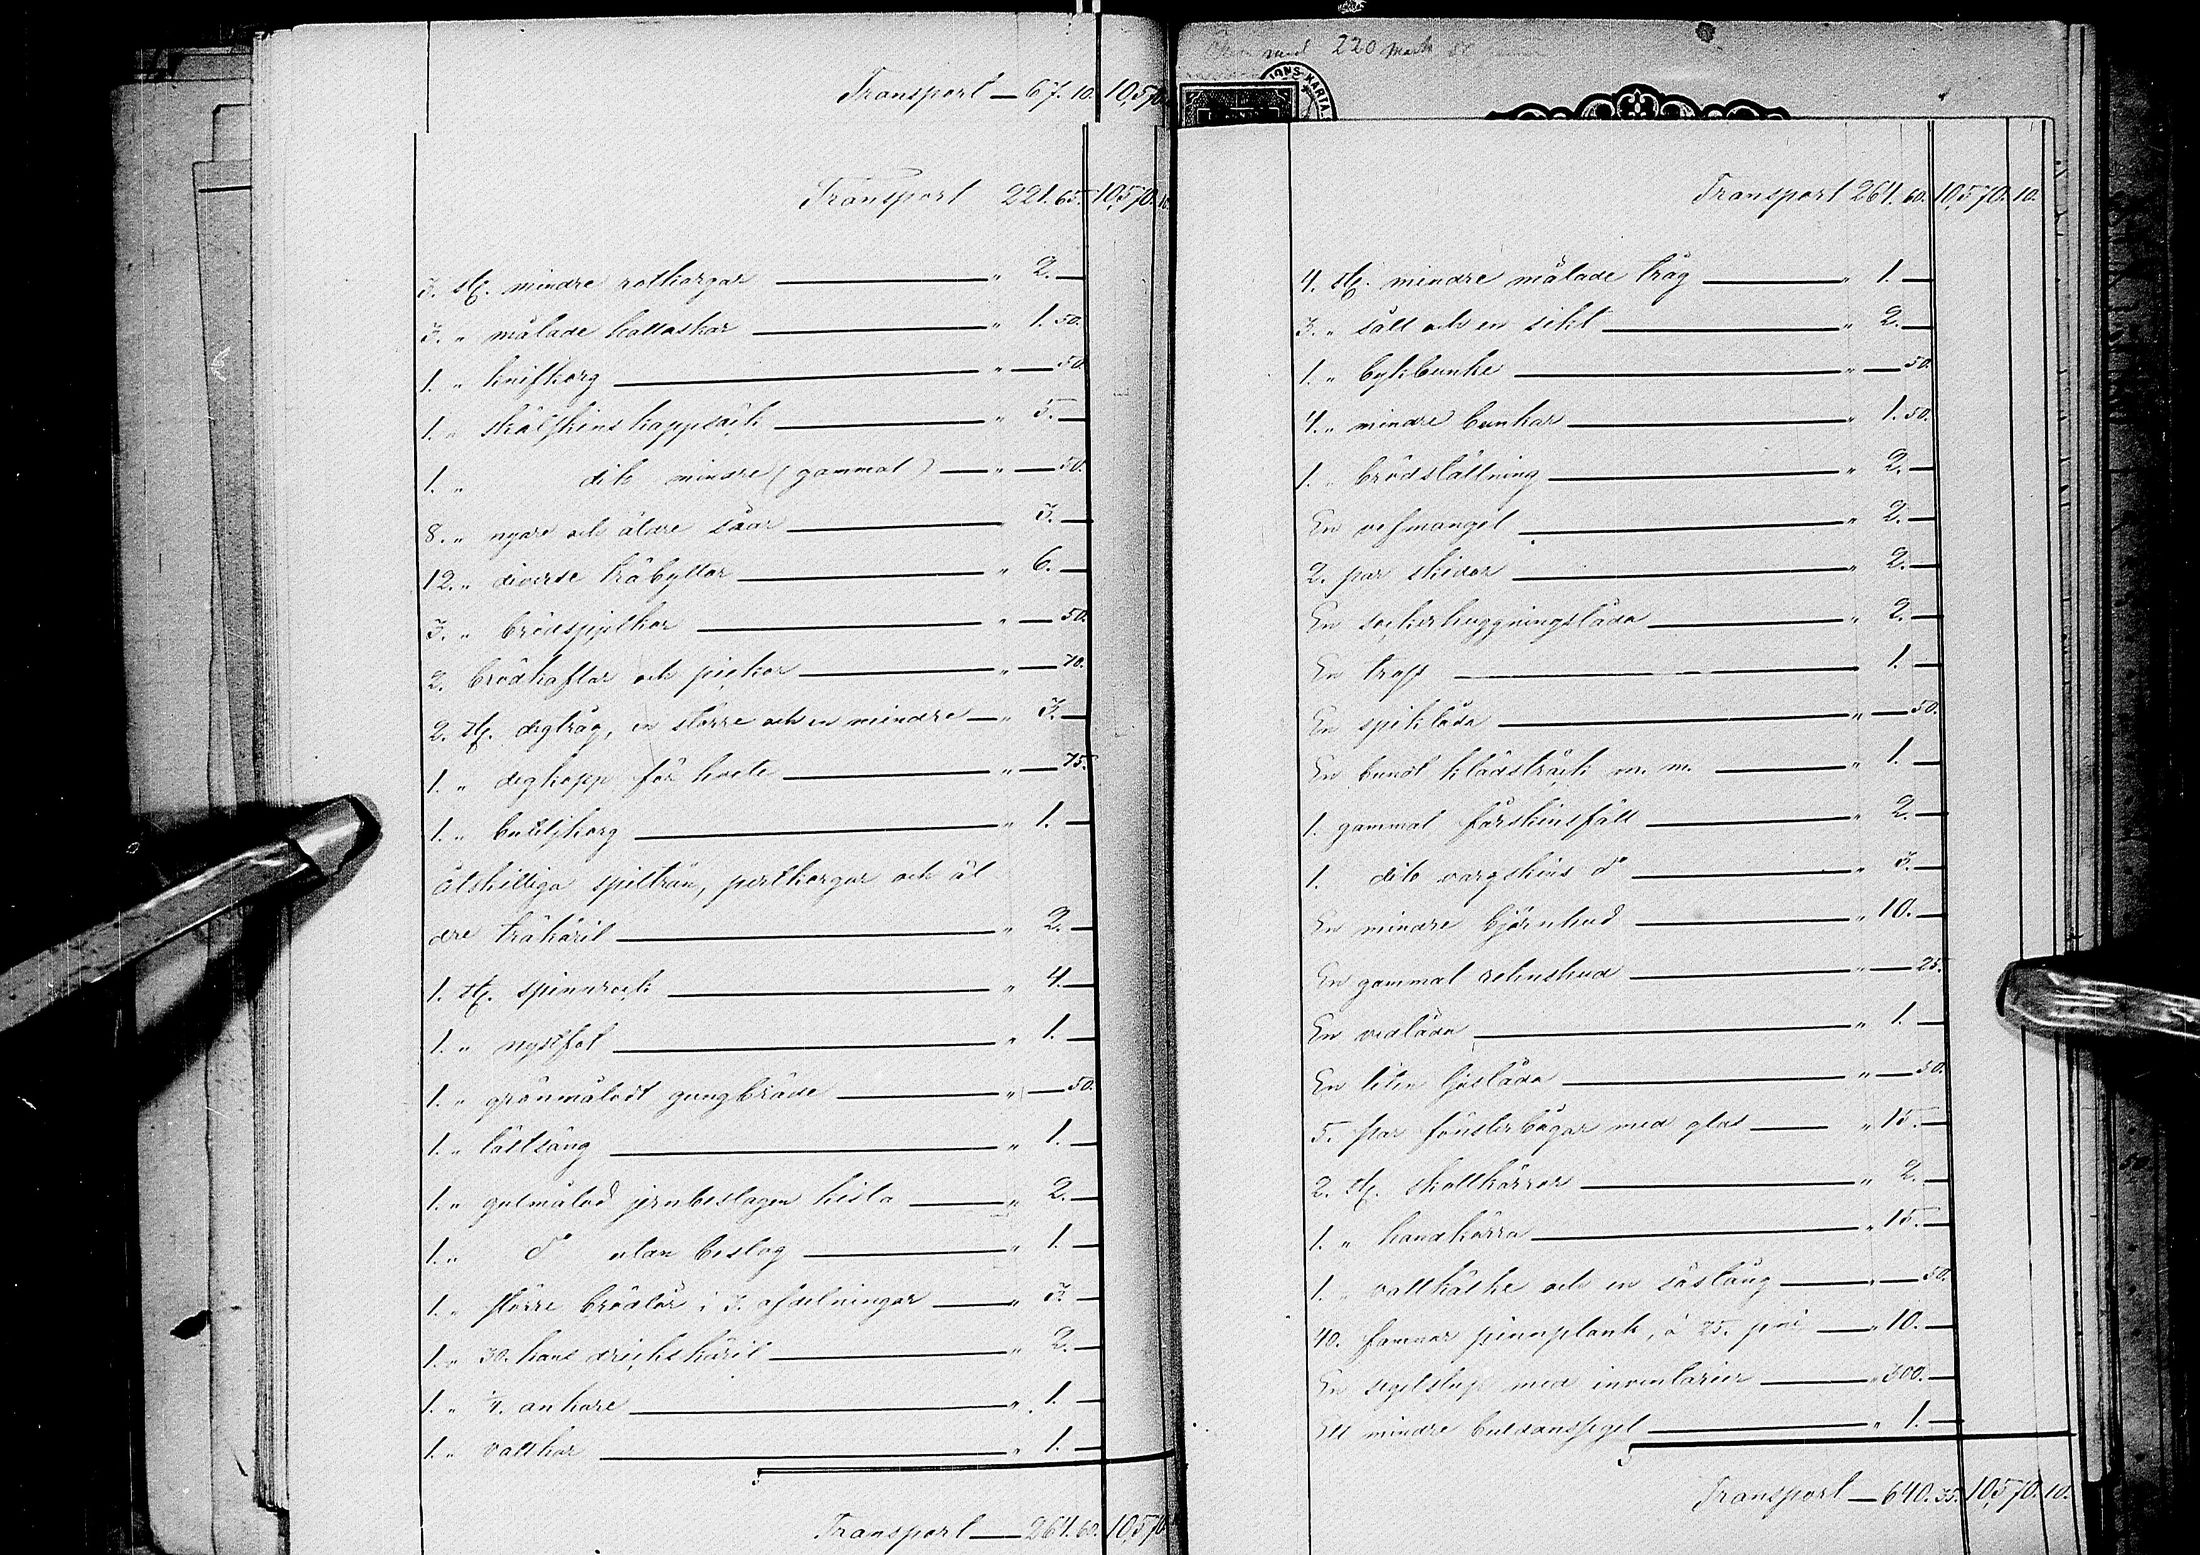 Transport — 67. 10. 10,570.
Transport 221. 65. 10,570. 10.
3. st. mindre rotkorgar — " 2. —
3. " målade kallaskar — " 1. 50.
1. " knifkorg — " — 50.
1. " skälskins kappsäck — " 5. —
1. " dito mindre (gammal) — " — 50.
8. " nyare och äldre såar — " 3. —
12. " diverse träbyttor — " 6. —
3. " brödspjelkar — " — 50.
2. brödkaflar och pickor — " — 70.
2. st. degtråg, en större och en mindre — " 3. —
1. " degkopp för hvete — " — 75.
1. " buteljkorg — " 1. —
åtskilliga spilträn, pertkorgar och äl
dre träkäril — " 2. —
1. st. spinnrock — " 4. —
1. " nystfot — " 1. —
1. " grönmåladt gungbräde — " — 50.
1. " tältsäng — " 1. —
1. " gulmålad jernbeslagen kista — " 2. —
1. " d:o utan beslag — " 1. —
1. " större brödlår i 3. afdelningar — " 3. —
1. " 30. kans dricks käril — " 2. —
1. " 1/4. ankare — " 1. —
1. " vattkar — " 1. —
Transport — 264. 60. 10,570.
220 mark
Transport 264. 60. 10,570. 10.
4. st. mindre målade tråg — " 1. —
3. " såll och en sikt — " 2. —
1. " bykbunke — " — 50.
4. " mindre bunkar — " 1. 50.
1. " brödställning — " 2. —
En vefmangel — " 2. —
2. par skidor — " 2. —
En sockerhuggningslåda — " 2. —
En — 1. —
En spiklåda — " — 50.
En bundt klädsträck m. m. — " 1. —
1. gammal fårskinsfäll — " 2. —
1. dito vargskins d:o — " 3. —
En mindre björnhud — " 10. —
En gammal renshud — " — 25.
En vedlåda — " 1. —
En liten ljuslåda — " — 50.
5. par fönsterbågar med glas — " 15. —
2. st. skottkärror — " 2. —
1. " handkärra — " 15. —
1. " vattkälke och en såstång — " — 50.
40. famnar pinnplank, à 25. p:ni — " 10. —
En segelslup med inventarier — " 300. —
Ett mindre buldanssegel — " 1. —
Transport — 640. 35. 10,570. 10.